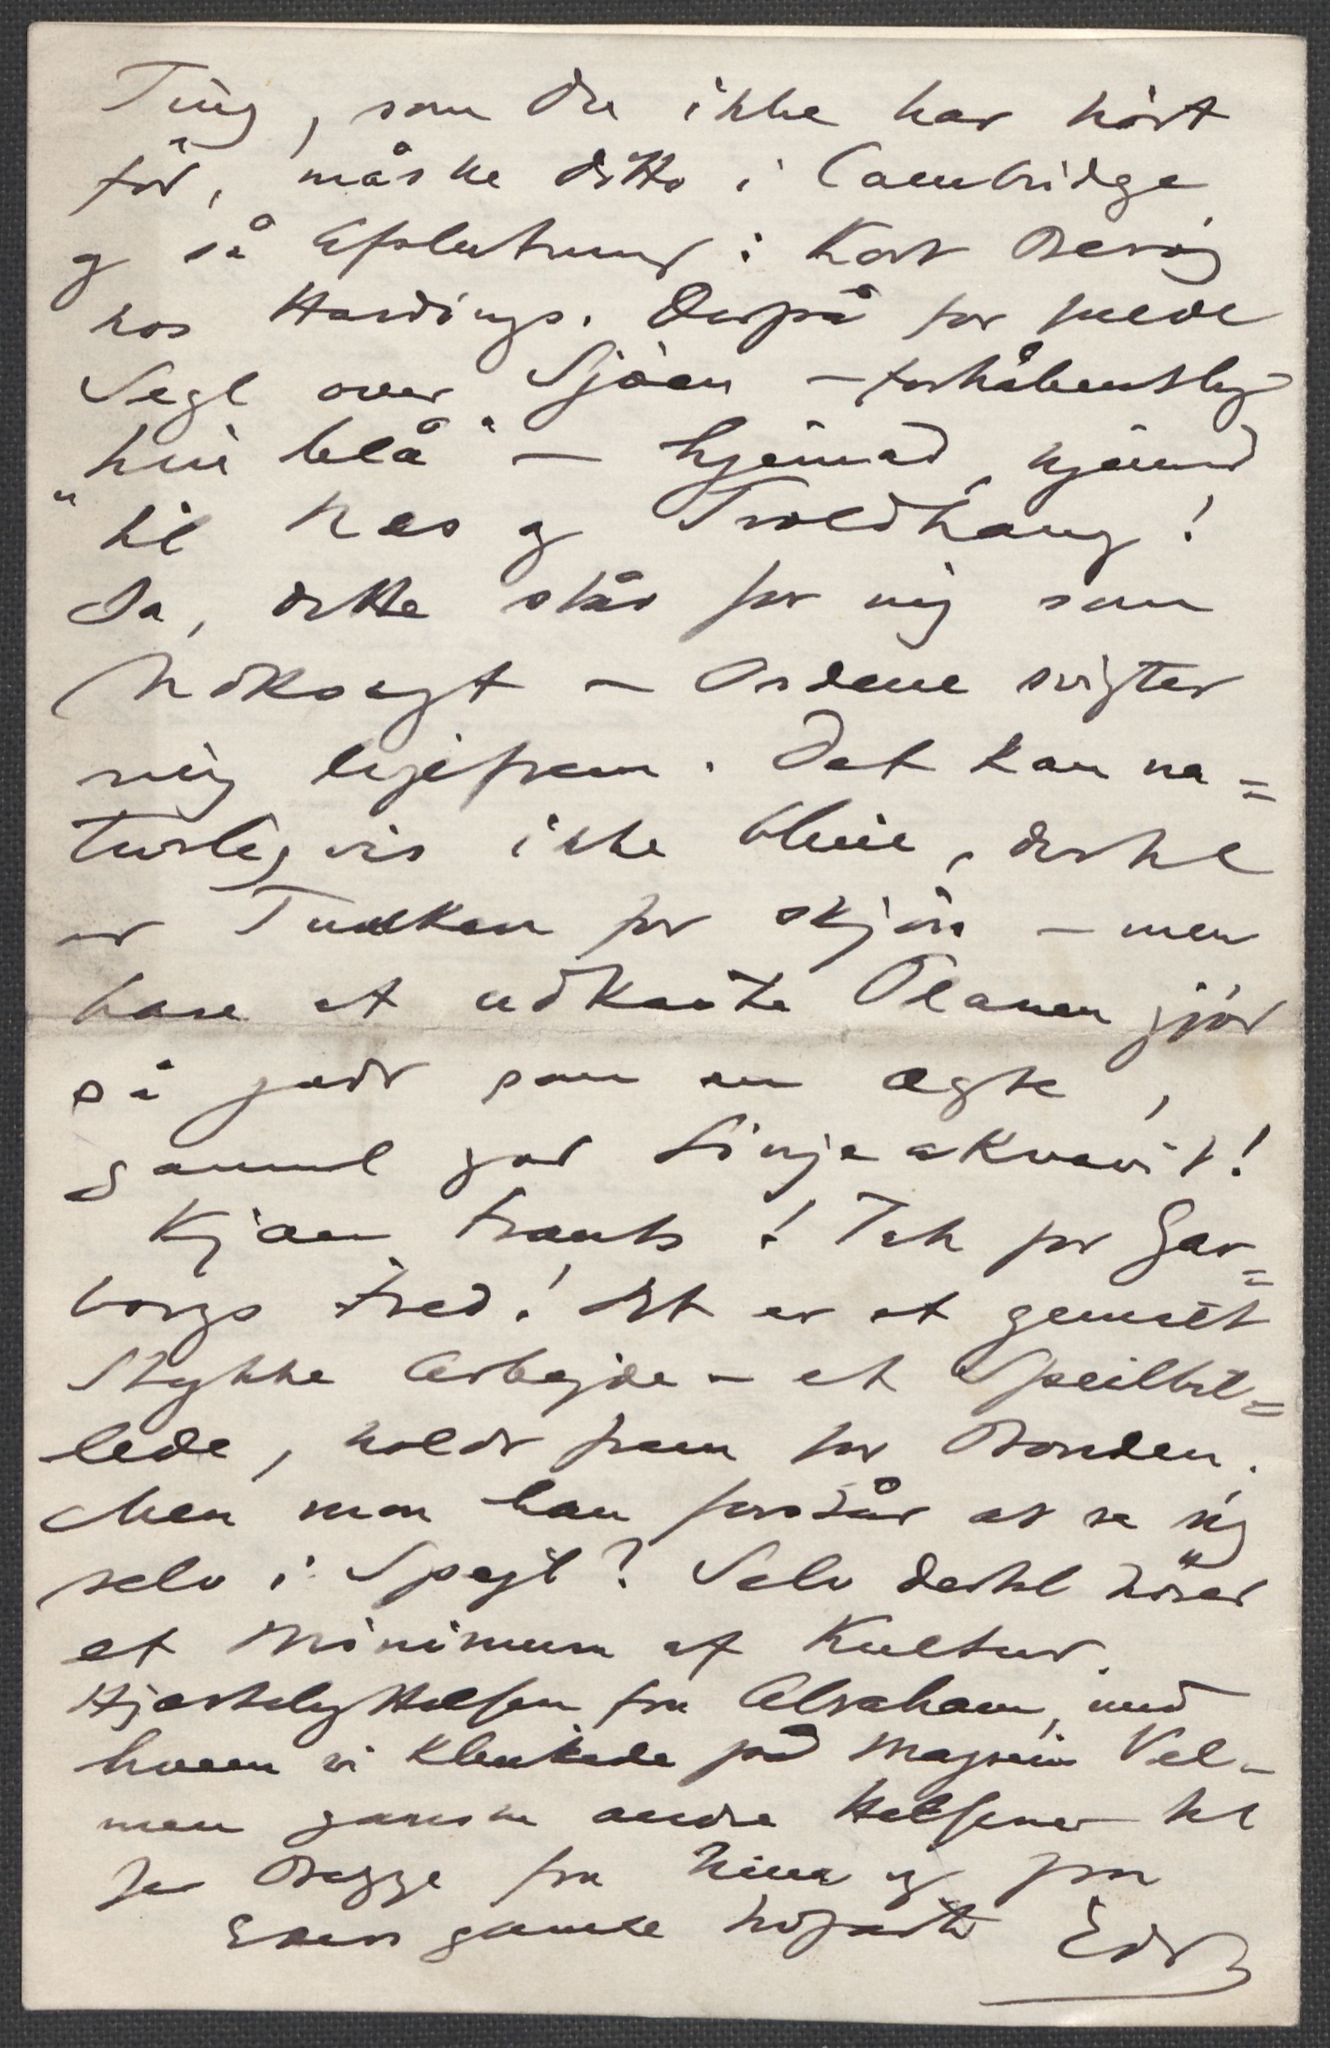 Ting, som Du ikke har hört
för, måske ditto i Cambridge
og så Afslutning: Kort Besög
hos Hardings. Derpå for fulde
Segl over Sjöen – forhåbentlig
"hin blå" – hjemad, hjemad
"til Næs og Troldhaug!
Ja, dette står for mig som
– Ordene svigter
mig ligefrem. Det kan na=
turligvis ikke blive, dertil
er Tanken for skjön – men
bare at udkaste Planen gjör
så godt som en ægte,
gammel god Linjeakvavit!
Kjære Frants! Tak for Gar=
borgs Fred! Det er et genialt
Stykke Arbejde – et Speilbil=
lede, holdt frem for Bonden.
Men mon han forstår at se sig
selv i Spejl? Selv dertil hörer
et Minimum af Kultur.
Hjertelig Hilsen fra Abraham, med
hvem vi klinkede på Magrein Vel-
men ganske andre Hilsener til
Jer Begge fra Nina og fra
Eders gamle Edv